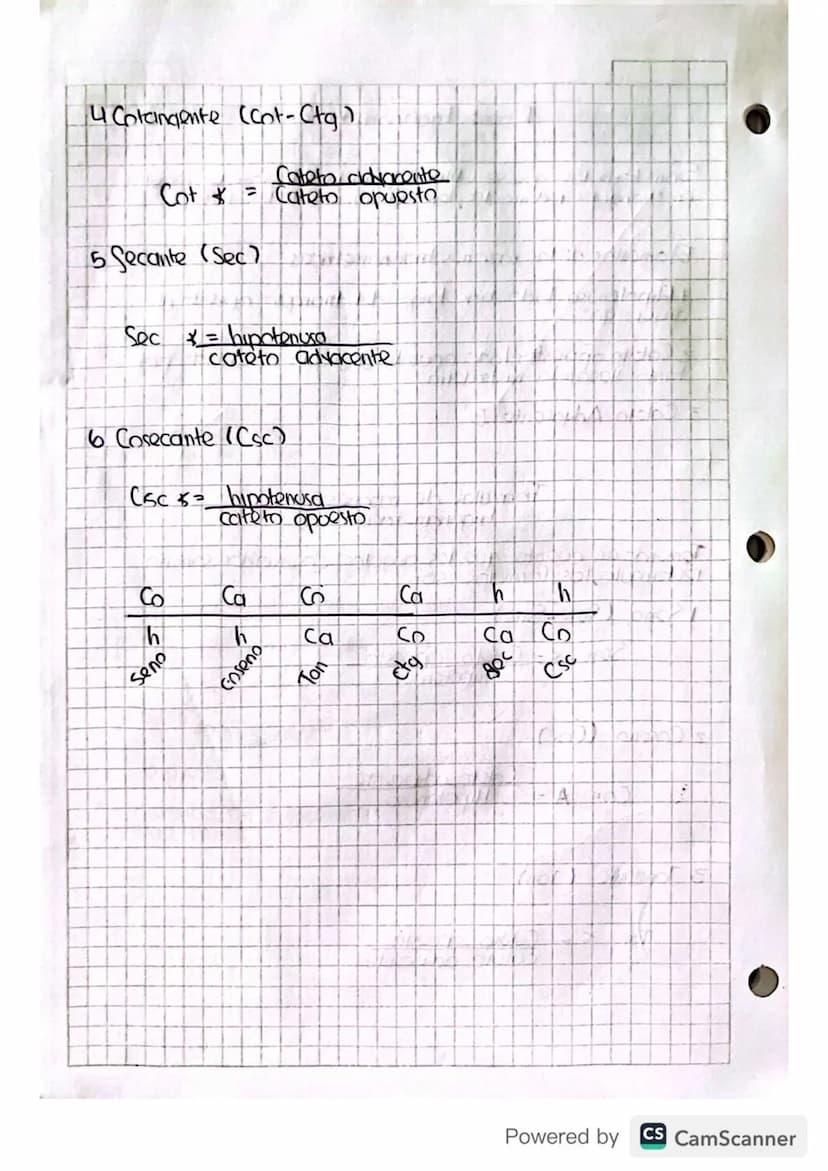 4 Cotangente (Cot-Ctg)
Cateto adyacente
Cot ∝ = Cateto opuesto
5 Secante (Sec)
Sec ∝ = hipotenusa
cateto adyacente
6 Cosecante (Csc)
Csc ∝ = hipotenusa
cateto opuesto
Co Ca Co Ca h h
h h Ca Co Ca Co
seno coseno Tan Ctg Sec Csc
Powered by CS CamScanner